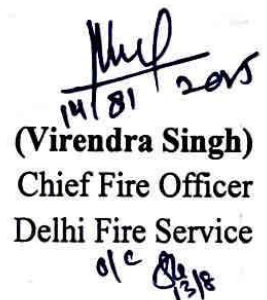 14/81 2015
(Virendra Singh)
Chief Fire Officer
Delhi Fire Service
o/c
13/8